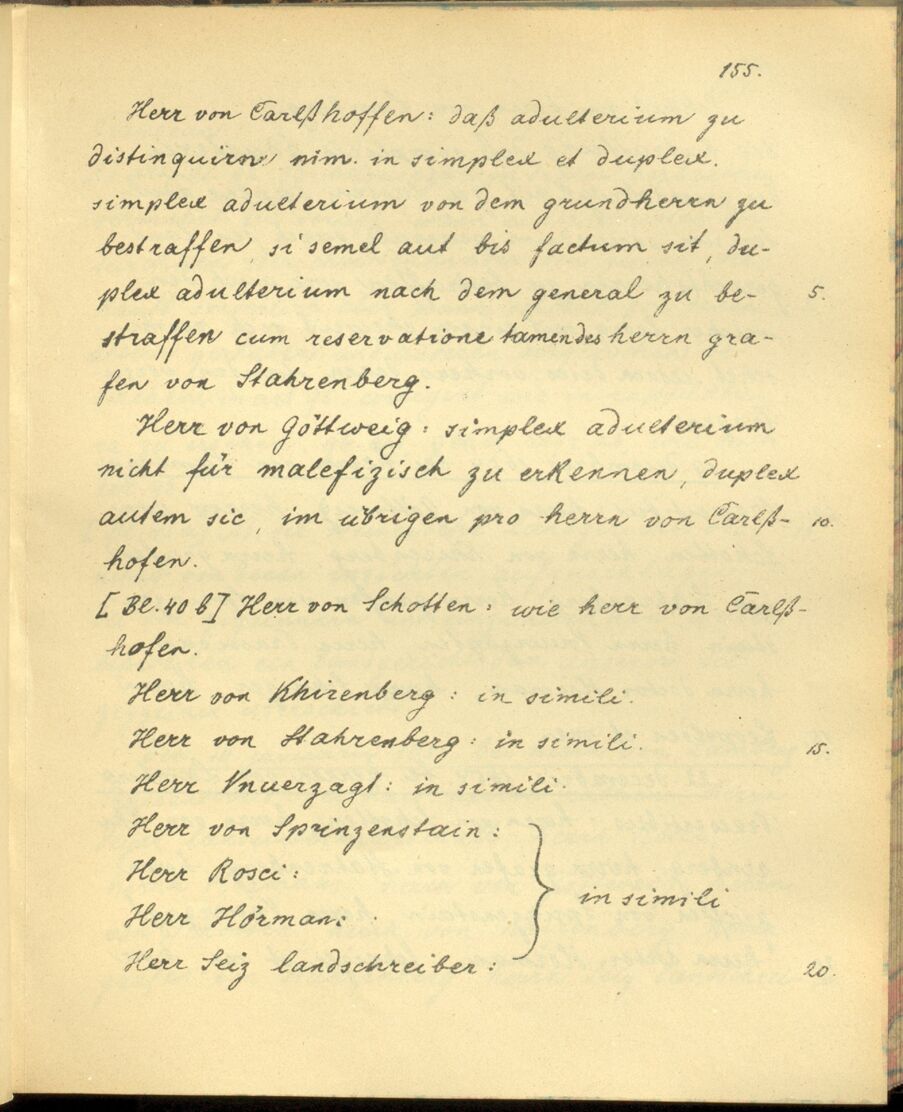 155.
Herr von Carlßhoffen: daß adulterium zu
distinquirn nim. in simplex et duplex.
simplex adulterium von dem grundherrn zu
bestraffen, si semel aut bis factum sit, du-
plex adulterium nach dem general zu be- 5.
straffen cum reservatione tamen des herrn gra-
fen von Stahrenberg.
Herr von Göttweig: simplex adulterium
nicht für malefizisch zu erkennen, duplex
autem sic, im übrigen pro herrn von Carlß- 10.
hofen.
[Bl. 40 b] Herr von Schotten: wie herr von Carlß-
hofen.
Herr von Khirenberg: in simili.
Herr von Stahrenberg: in simili. 15.
Herr Vnuerzagt: in simili.
Herr von Sprinzenstain:
Herr Rosci:
Herr Hörman: } in simili
Herr Seiz landschreiber: 20.